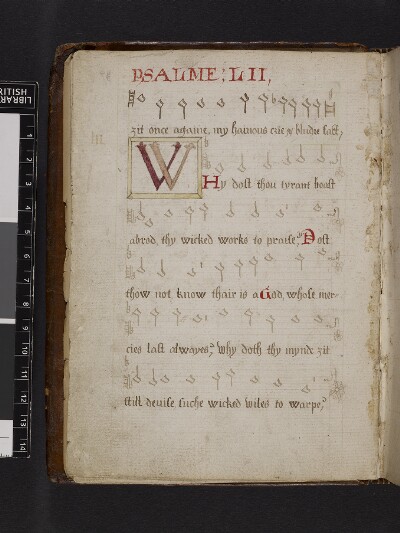 PSALME: LII,
zit once againe, my hainous crie & blindie fact,
WHy dost thou tyrant boast
abrod, thy wicked works to praise? Dost
thow not know thair is a God, whose mer-
cies last alwayes? Why doth thy mynde zit
still deuise suche wicked wiles to warpe?
BRITISH
LIBRARY
1
2
3
4
5
6
7
8
9
10
11
12
13
14